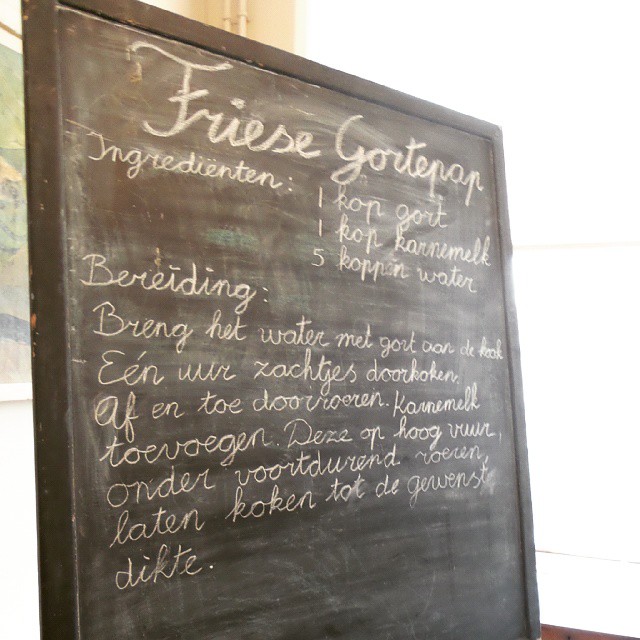 Friese Gortepap
Ingrediënten:
1 kop gort
1 kop karnemelk
5 koppen water
Bereiding:
Breng het water met gort aan de kook
Eén uur zachtjes doorkoken.
Af en toe doorroeren. Karnemelk
toevoegen. Deze op hoog vuur,
onder voortdurend roeren,
laten koken tot de gewenste
dikte.